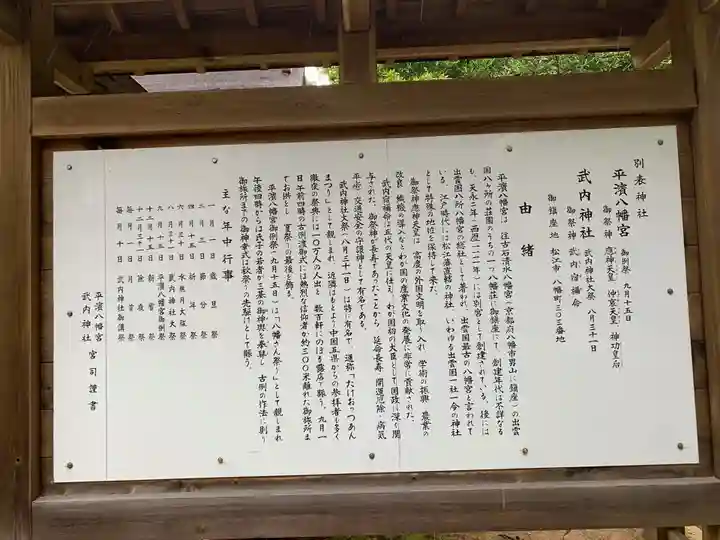 別表神社
平濱八幡宮
御例祭 九月十五日
御祭神 應神天皇 仲哀天皇 神功皇后
武内神社
武内神社大祭 八月三十一日
御祭神 武内宿禰命
御鎮座地 松江市八幡町三〇三番地
由緒
平濱八幡宮は、往古石清水八幡宮(京都府八幡市男山に鎮座)の出雲
国八ケ所の荘園のうちの一つ八幡荘に御鎮座にて 創建年代は不詳なる
も、天永二年(西暦一一一一年)には別宮として創建されている。後には
出雲国八所八幡宮の総社として著われ、出雲国最古の八幡宮と言われて
いる。江戸時代には松江藩直轄の神社 いわゆる出雲国一社一令の神社
として特殊の地位を保持して来た。
御祭神應神天皇は 高度の外国文明を取り入れ 学術の振興 農業の
改良 織機の導入などわが国の産業文化の発展に非常に貢献された。
武内宿禰命は五代の天皇に仕え わが国初の大臣として国政に深く関
与された。御祭神が長寿であったことから 延命長寿 開運厄除・病気
平癒・交通安全の守護神として有名である。
武内神社大祭(八月三十一日)は特に有名で 通称「たけおっつあん
まつり」として親しまれ 近隣はもとより中国五県からの参拝者も多く
徹夜の祭典には一〇万人の人出と 数百軒にのぼる露店で賑う。九月一
日午前四時の古例渡御式には熱烈な信仰者が約三〇〇米離れた御旅所ま
でお供をし 夏祭りの最後を飾る。
平濱八幡宮御例祭(九月十五日)は「八幡さん祭り」として親しまれ
午後四時からは氏子の若者が三基の御神輿を奉舁し 古例の作法に則り
御旅所までの御神幸式は秋祭りの先駆けとして賑う。
主な年中行事
一月一日 歳旦祭
二月三日 節分祭
四月十五日 祈年祭
六月三十日 水無月大祓祭
八月三十一日 武内神社大祭
九月十五日 平濱八幡宮御例祭
十二月十五日 新嘗祭
十二月三十一日 除夜祭
毎月一日 月首祭
毎月十日 武内神社御講祭
平濱八幡宮
武内神社 宮司謹書